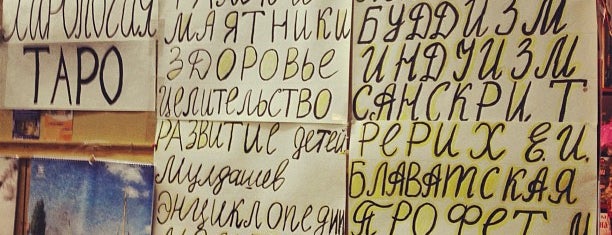 ТАРО
МАЯТНИКИ
ЗДОРОВЬЕ
ЦЕЛИТЕЛЬСТВО
РАЗВИТИЕ детей
Мулдашев
ЭНЦИКЛОПЕДИИ
БУДДИЗМ
ИНДУИЗМ
САНСКРИТ
РЕРИХ Е.И.
БЛАВАТСКАЯ
ПРОФЕТ